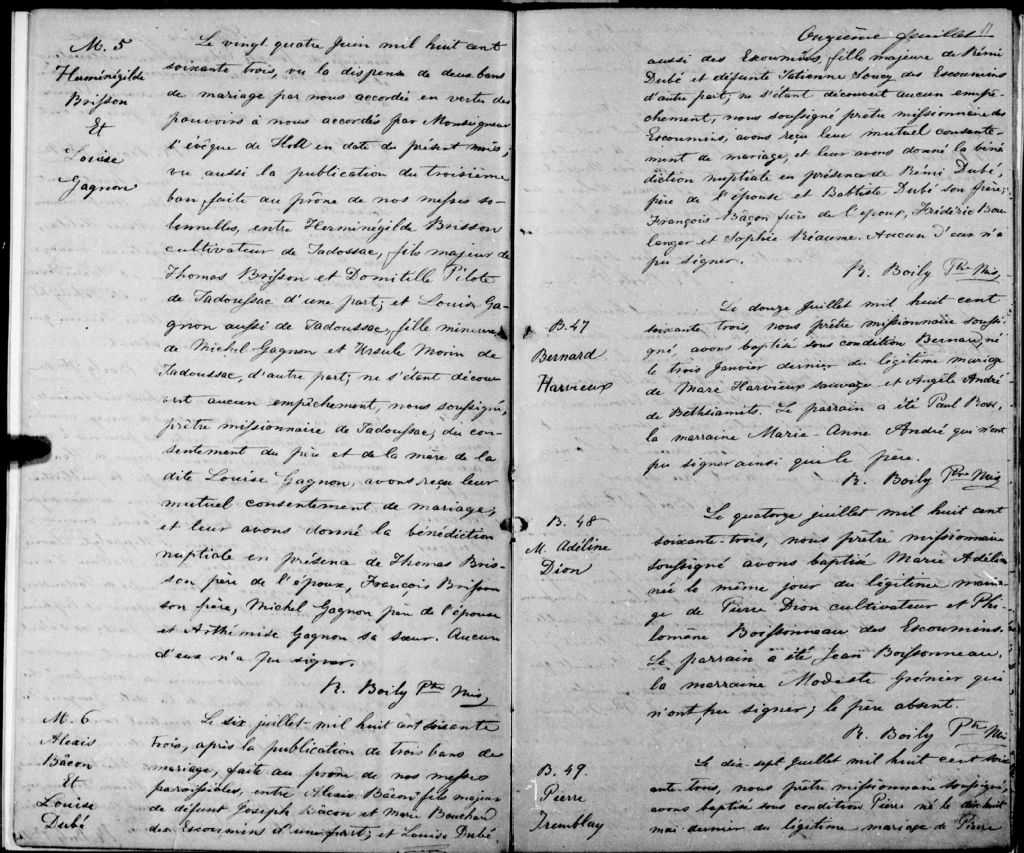 M. 5
Huménégilde
Brisson
Et
Louise
Gagnon
Le vingt quatre Juin mil huit cent
soixante trois, vu la dispense de deux bans
de mariage par nous accordée en vertu des
pouvoirs à nous accordés par Monseigneur
l'évêque de en date du présent mois;
vu aussi la publication du troisième
ban, faite au prône de nos messes so-
lennelles, entre Herménégilde Brisson
cultivateur de Tadossac, fils majeur de
Thomas Brisson et Domitille Pilote
de Tadoussac d'une part; et Louise Ga-
gnon aussi de Tadoussac, fille mineure
de Michel Gagnon et Ursule Morin de
Tadoussac, d'autre part; ne s'étant décou
vert aucun empêchement, nous soussigné,
prêtre missionnaire de Tadoussac, du con-
sentement du père et de la mère de la
dite Louise Gagnon, avons reçu leur
mutuel consentement de mariage,
et leur avons donné la bénédiction
nuptiale en présence de Thomas Bris-
son père de l'époux, François Brisson
son frère, Michel Gagnon père de l'épouse
et Arthémise Gagnon sa sœur. Aucun
d'eux n'a pu signer.
R. Boily Ptre Mis
M. 6
Alexis
Bâcon
Et
Louise
Dubé
Le six juillet mil huit cent soixante
trois, après la publication de trois bans de
mariage, faite au prône de nos messes
paroissiales, entre Alexis Bâcon fils majeur
de défunt Joseph Bâcon et Marie Bouchard
des Escoumins d'une part; et Louise Dubé
Onzième feuillet 11
aussi des Escoumins, fille majeure de Rémi
Dubé et défunte Tatienne Soucy des Escoumins
d'autre part; ne s'étant découvert aucun empê-
chement, nous soussigné prêtre missionnaire des
Escoumins, avons reçu leur mutuel consente-
ment de mariage, et leur avons donné la béné
diction nuptiale en présence de Rémi Dubé,
père de l'épouse et Baptiste Dubé son frère;
François Bâcon frère de l'époux, Frédéric Bou
langer et Sophie Réaume. Aucun d'eux n'a
pu signer.
R. Boily Ptre Mis,
B. 47
Bernard
Harvieux
Le douze Juillet mil huit cent
soixante trois, nous prêtre missionnaire soussi-
gné, avons baptisé sous condition Bernard, né
le trois Janvier dernier du légitime mariage
de Marc Harvieux sauvage et Angèle André
de Bethsiamits. Le parrain a été Paul Ross,
la marraine Marie-Anne André qui n'ont
pu signer ainsi que le père.
R. Boily Ptre Mis
B. 48
M. Adéline
Dion
Le quatorze juillet mil huit cent
soixante-trois, nous prêtre missionnaire
soussigné avons baptisé Marie Adéline
née le même jour du légitime maria-
ge de Pierre Dion cultivateur et Phi-
lomène Boissonneau des Escoumins.
Le parrain a été Jean Boissonneau,
la marraine Modeste Grénier qui
n'ont pu signer; le père absent.
R. Boily Ptre Mis
B. 49.
Pierre
Tremblay
Le dix-sept Juillet mil huit cent soix
ante-trois, nous prêtre missionnaire soussigné,
avons baptisé sous condition Pierre né le dix huit
mai dernier du légitime mariage de Pierre